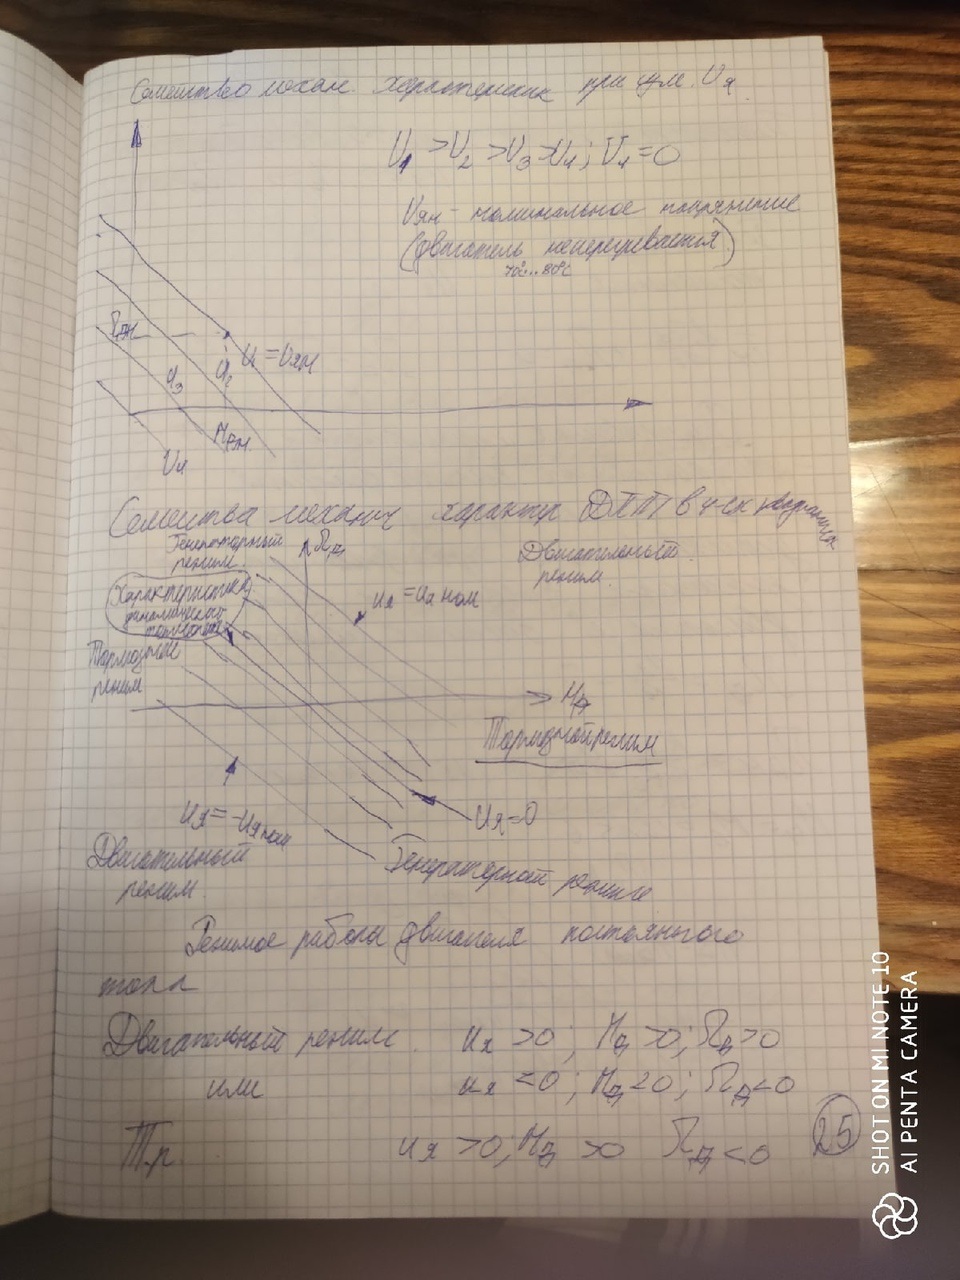 Семейство механ. характеристик при изм. Uя.
U1 > U2 > U3 > U4; U4 = 0
Uян - номинальное напряжение
(двигатель неперегревается)
70°...80°C
Ωдн
U1 = Uян
U2
U3
Mдн.
U4
Семейства механич характер ДПТ в 4-ех квадрантах
Генераторный
режим.
Ωд
Двигательный
режим.
Характеристика
динамического
торможения
uя = uя ном
Тормозной
режим
Mд
Тормозной режим
uя = -uя ном
uя = 0
Двигательный
режим
Генераторный режим
Режимы работы двигателя постоянного
тока
Двигательный режим. uя > 0; Mд > 0; Ωд > 0
или uя < 0; Mд < 0; Ωд < 0
Т.р uя > 0; Mд > 0 Ωд < 0
25
SHOT ON MI NOTE 10
AI PENTA CAMERA